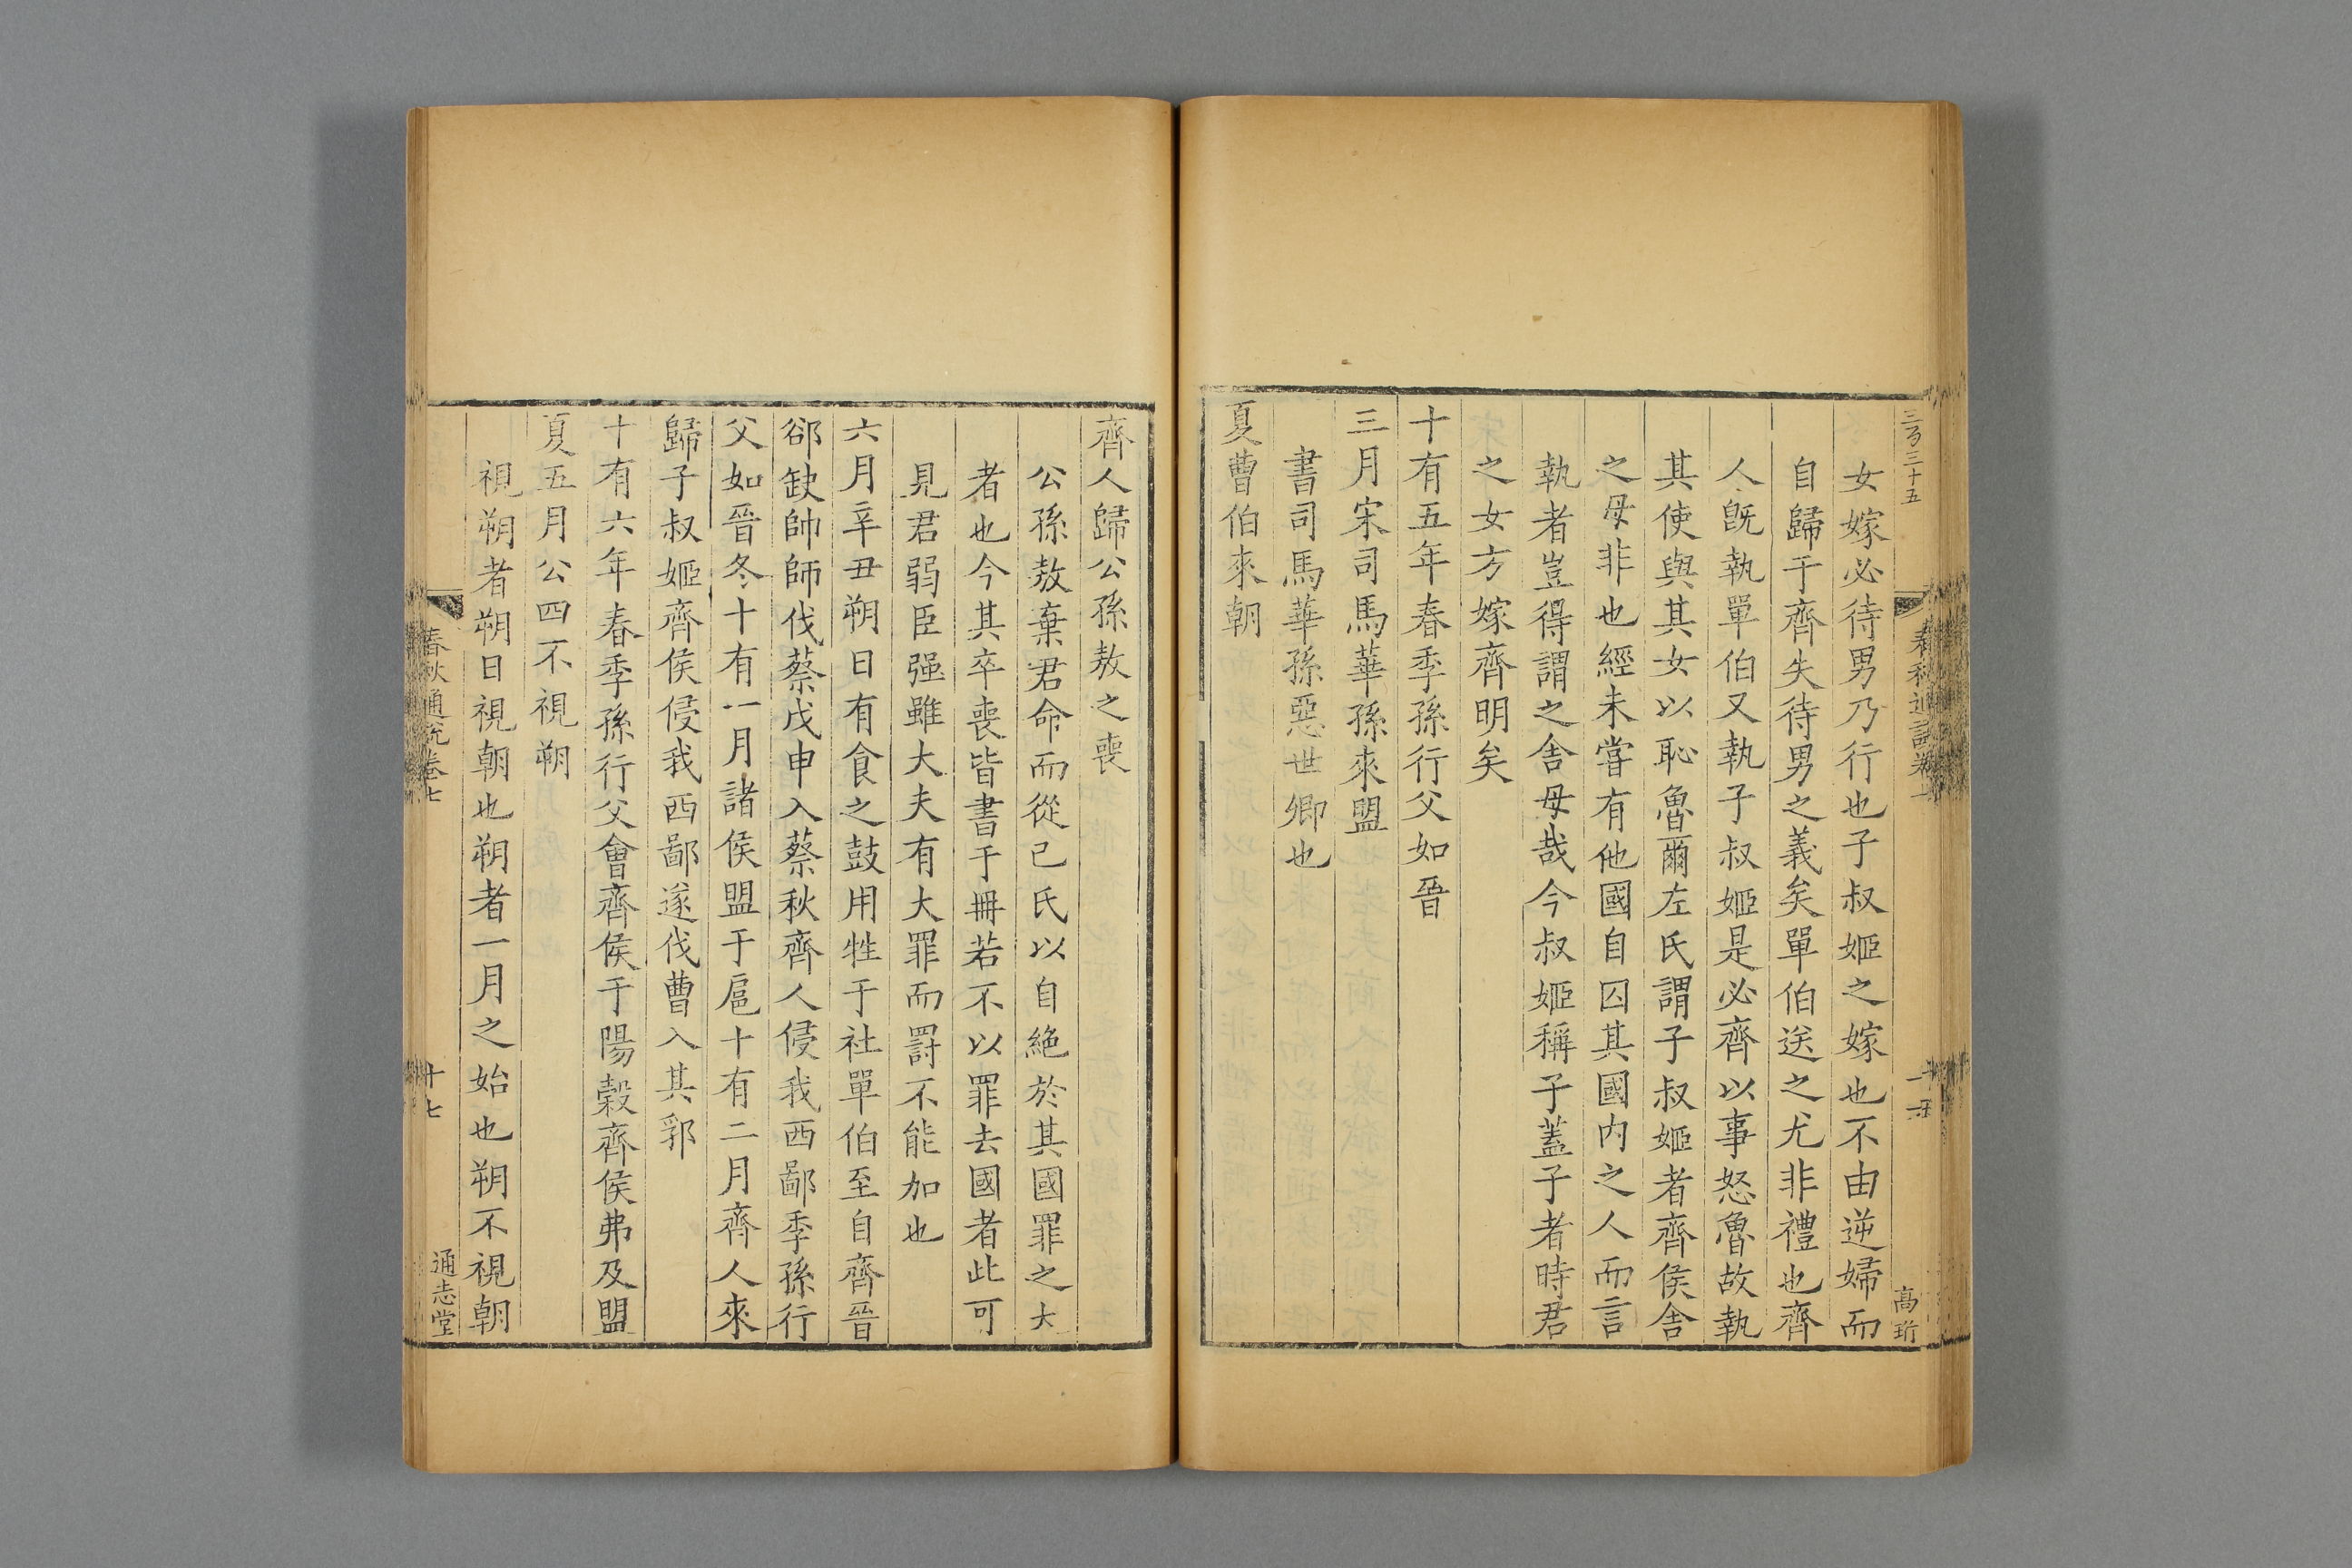 三百三十五
高珩
女嫁必待男乃行也子叔姬之嫁也不由逆婦而
自歸于齊失待男之義矣單伯送之尤非禮也齊
人旣執單伯又執子叔姬是必齊以事怒魯故執
其使與其女以恥魯爾左氏謂子叔姬者齊侯舍
之母非也經未嘗有他國自囚其國内之人而言
執者豈得謂之舍母哉今叔姬稱子蓋子者時君
之女方嫁齊明矣
十有五年春季孫行父如晉
三月宋司馬華孫來盟
書司馬華孫惡世卿也
夏曹伯來朝
齊人歸公孫敖之喪
公孫敖棄君命而從己氏以自絶於其國罪之大
者也今其卒喪皆書于冊若不以罪去國者此可
見君弱臣强雖大夫有大罪而罰不能加也
六月辛丑朔日有食之鼓用牲于社單伯至自齊晉
郤缺帥師伐蔡戊申入蔡秋齊人侵我西鄙季孫行
父如晉冬十有一月諸侯盟于扈十有二月齊人來
歸子叔姬齊侯侵我西鄙遂伐曹入其郛
十有六年春季孫行父會齊侯于陽穀齊侯弗及盟
夏五月公四不視朔
視朔者朔日視朝也朔者一月之始也朔不視朝
春秋通說卷七
十七
通志堂